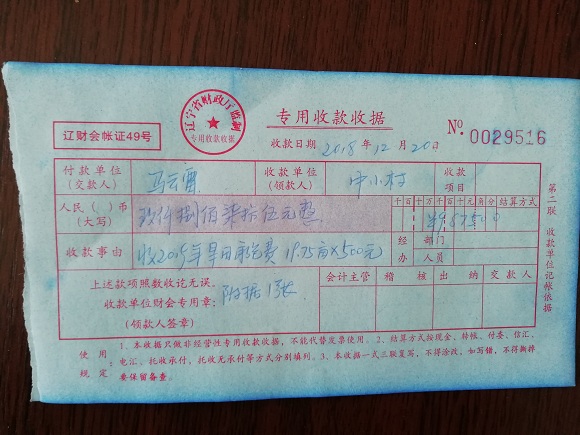 辽宁省财政厅监制
专用收款收据
专用收款收据
辽财会帐证49号
收款日期 2018年12月20日
No. 0029516
付款单位
(交款人)
收款单位
(领款人)
中小村
收款
项目
人民( )币
(大写)
玖仟捌佰柒拾伍元整
千百十万千百十元角分
结算方式
¥987500
收款事由
19.75亩×500元
经 部门
办 人员
上述款项照数收讫无误。
收款单位财会专用章:
(领款人签章)
附据1张
会计主管
稽 核
出 纳
交款人
第二联 收款单位记帐依据
使用规定
1、本收据只做非经营性专用收款收据,不能代替发票使用。2、结算方式按现金、转帐、付委、信汇、
电汇、托收承付,托收无承付等方式分别填列。3、本收据一式三联复写,不得涂改,如写错,不得撕掉
要保留备查。